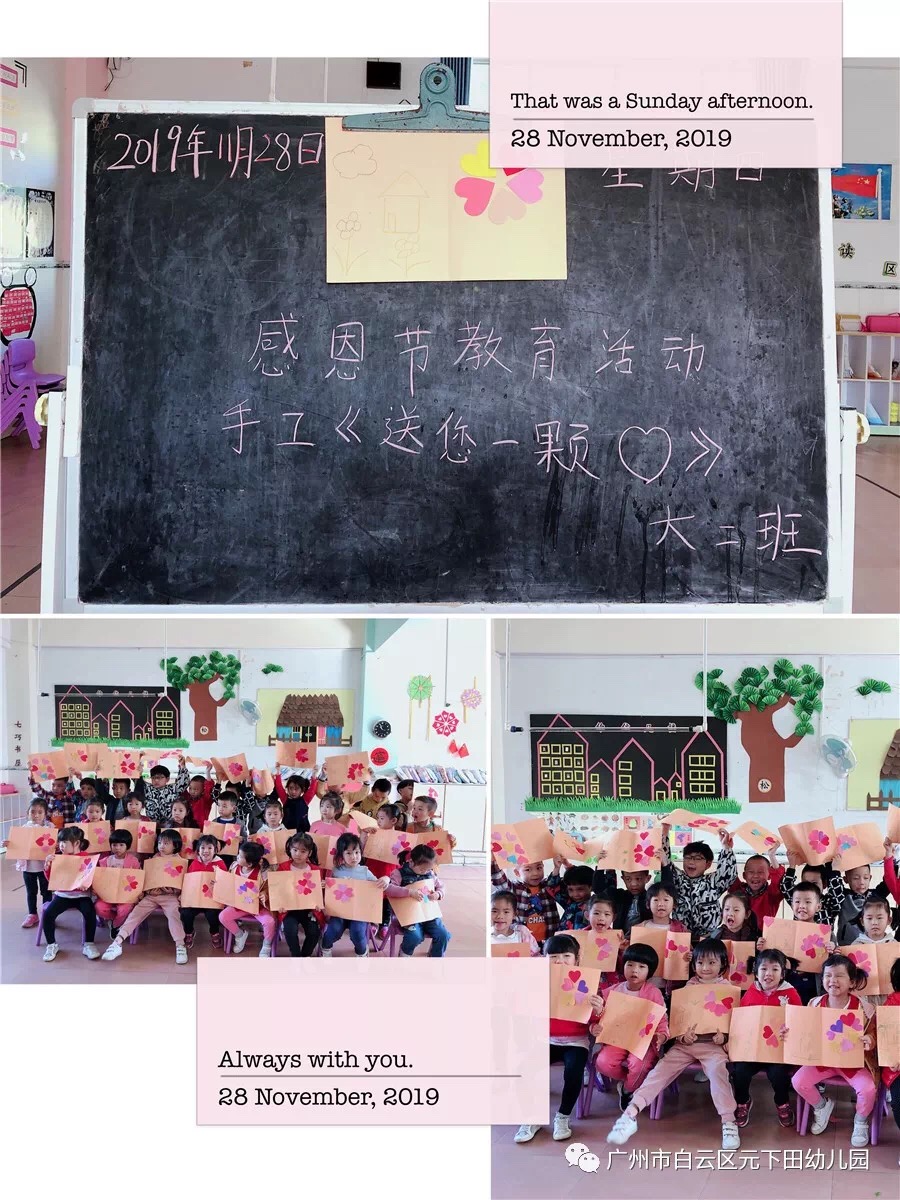 That was a Sunday afternoon.
28 November, 2019
2019年11月28日
星期日
感恩节教育活动
手工《送您一颗♡》
大二班
读
区
七巧书屋
松
松
Always with you.
28 November, 2019
广州市白云区元下田幼儿园